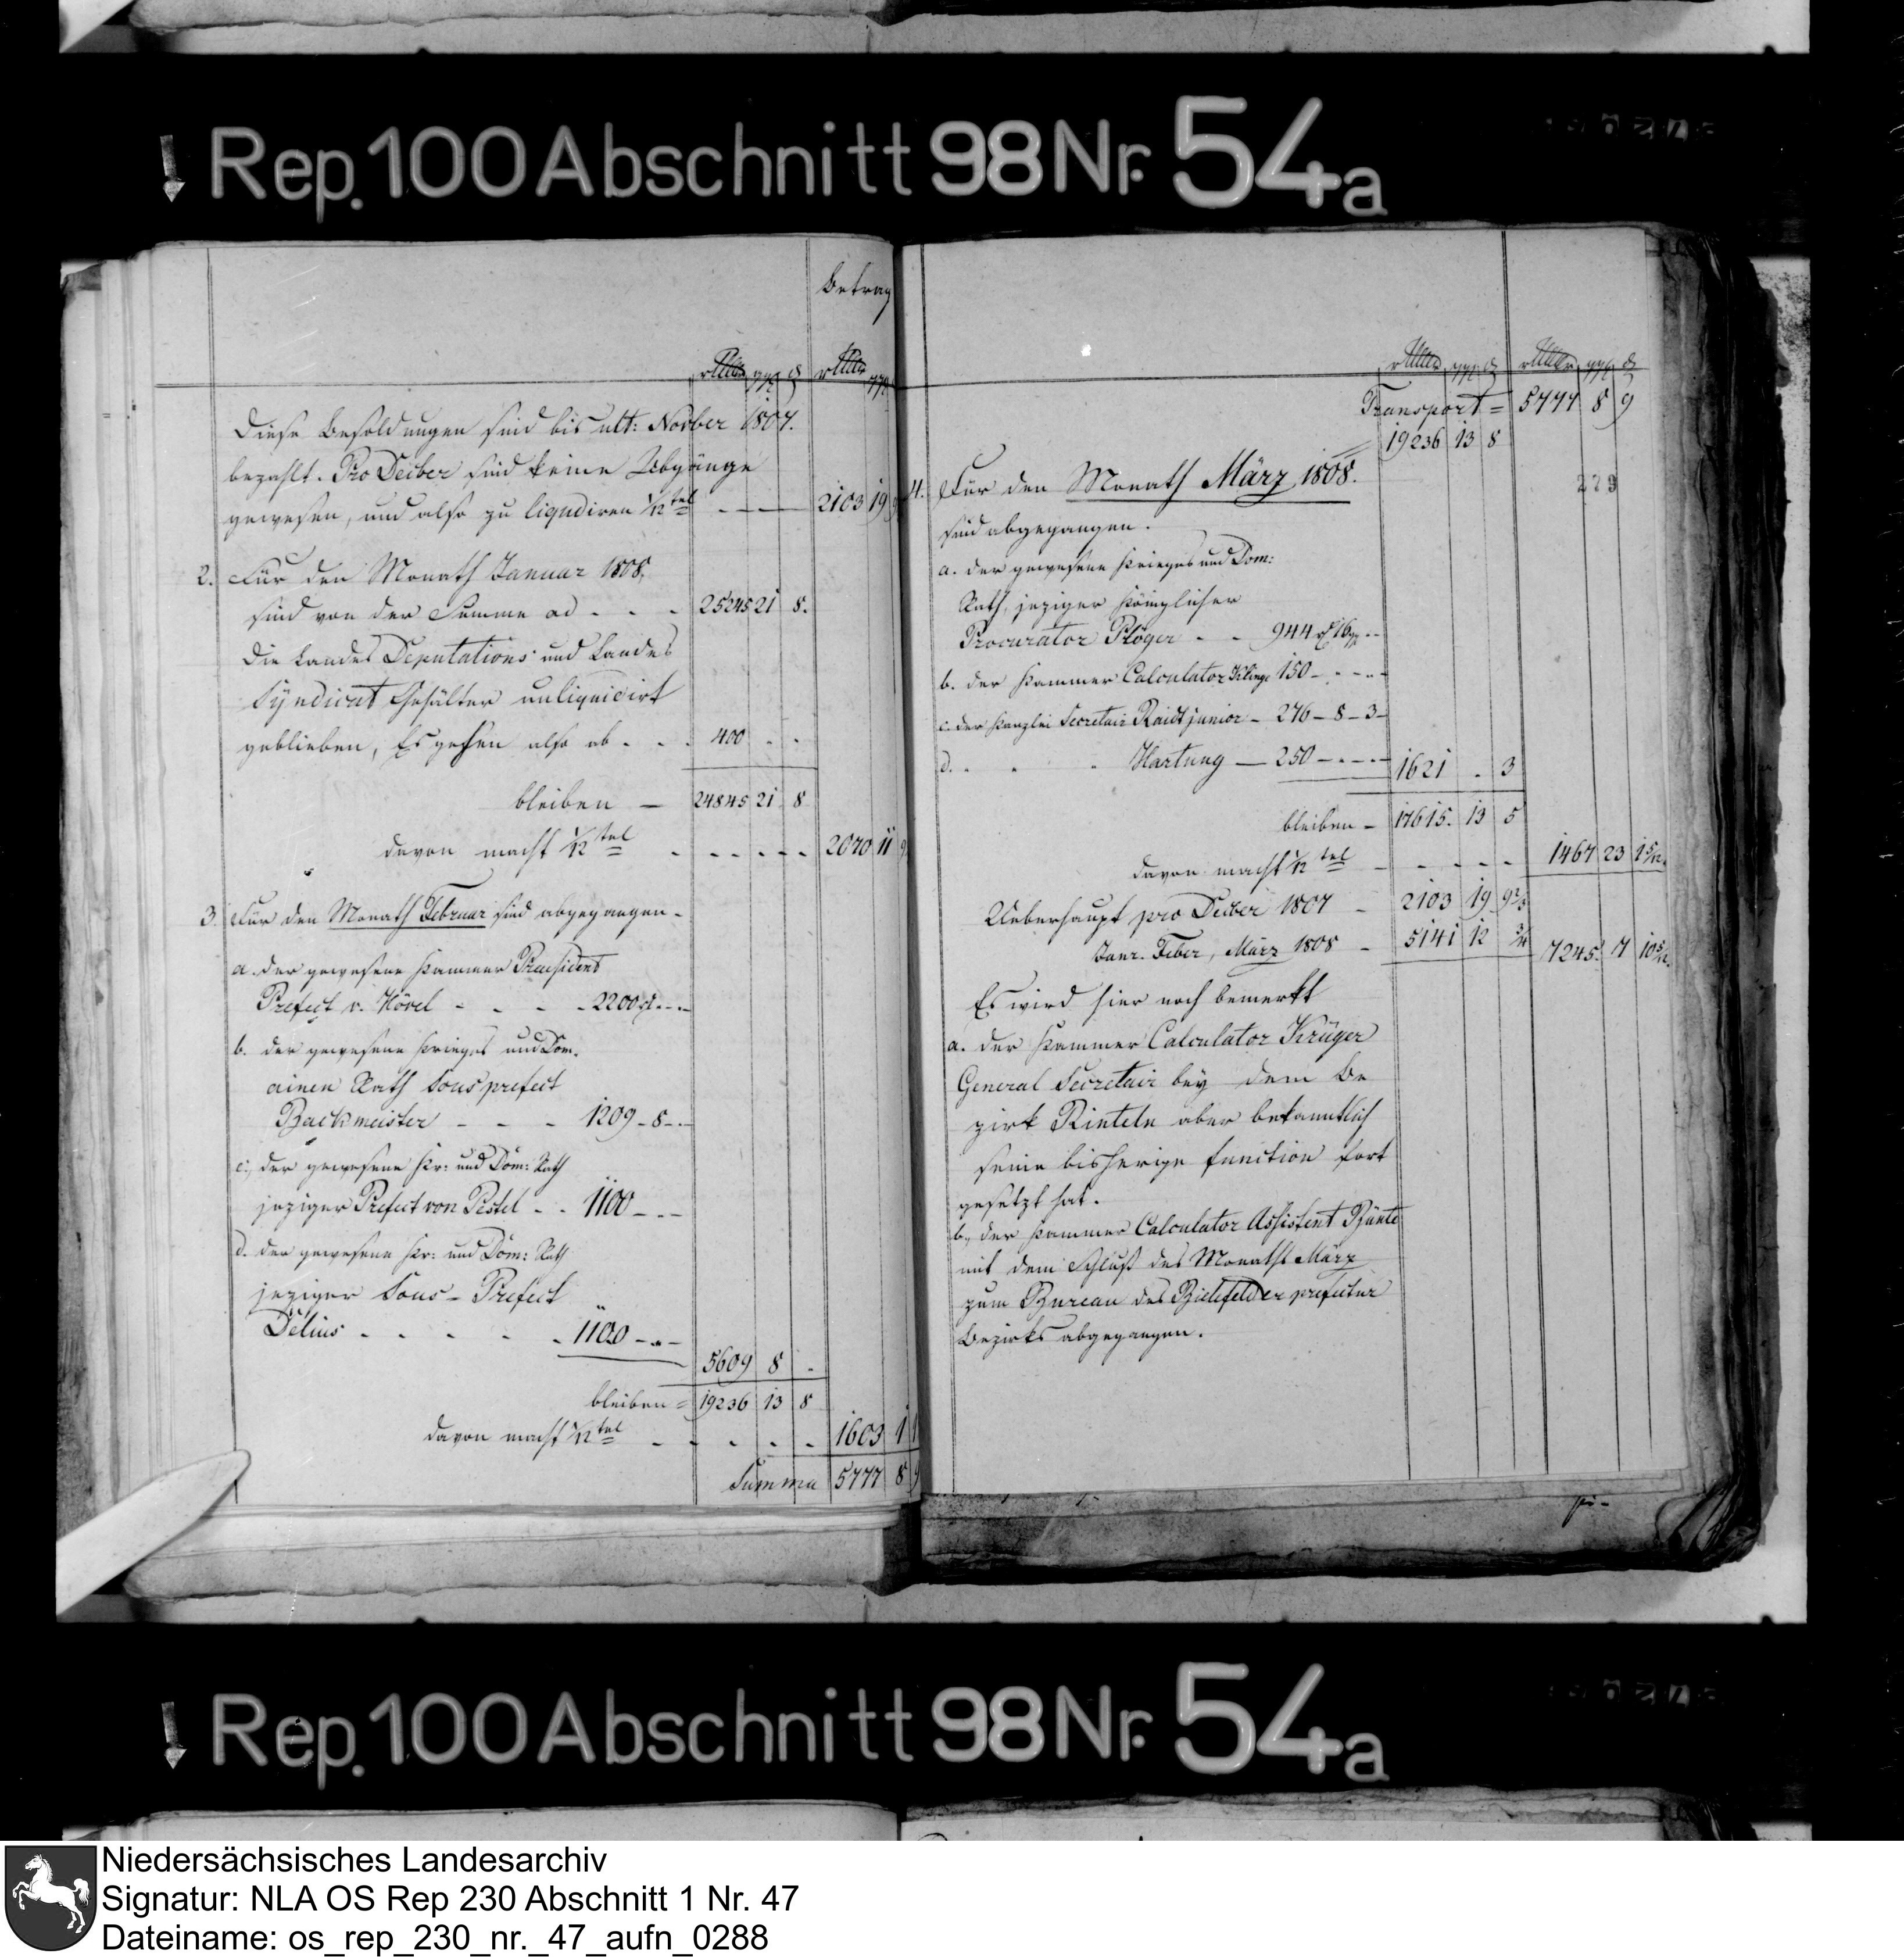 Rep. 100 Abschnitt 98 Nr. 54a
Betrag
rthlr ggr ₰ rthlr ggr
Diese Besoldungen sind bis ult: Novber 1807.
bezahlt. Pro Decber sind keine Abgänge
gewesen, und also zu liquidiren 1/12tel - - - 2103 19
2. Für den Monath Januar 1808,
sind von der Summe ad - - - 25245 21 8.
die Landes Deputations und Landes
Syndicat Gehälter unliquidirt
geblieben, Es gehen also ab - - - 400 - -
bleiben — 24845 21 8
davon macht 1/12tel - - - - - 2070 11 9
3. Für den Monath Februar sind abgegangen -
a. der gewesene Kammer Praesident
Prefect v. Hövel - - - - 2200 rt - -
b. der gewesene Krieges und Dom.
ainen Rath Sousprefect
Backmeister - - - 1209 - 8 - -
c. der gewesene Kr: und Dom: Rath
jeziger Prefect von Pestel - - 1100 - - -
d. der gewesene Kr: und Dom: Rath
jeziger Sous-Prefect
Delius - - - - - 1100 - - -
5609 8 -
bleiben = 19236 13 8
davon macht 1/12tel - - - - - 1603 1 1
Summa 5777 8 9
rthlr ggr ₰ rthlr ggr ₰
Transport = 5777 8 9
19236 13 8
279
4. Für den Monath März 1808.
sind abgegangen.
a. der gewesene Krieges und Dom:
Rath, jeziger Königlicher
Procurator Plöger - - 944 rt 16 gr - -
b. der Kammer Calculator Klinge 150 - - - -
c. der Kanzlei Secretair Raidt junior - 276 - 8 - 3 -
d. - - - Hartung — 250 - - - - 1621 - 3
bleiben - 17615. 13 5
davon macht 1/12tel - - - - - 1467 23 1 5/12.
Ueberhaupt pro Decber 1807 - 2103 19 9 2/3
Janr. Feber, März 1808 - 5141 12 3/4 7245. 7 10 5/12.
Es wird hier noch bemerkt
a. der Kammer Calculator Krüger
General Secretair bey dem Be
zirk Rinteln aber bekanntlich
seine bisherige function fort
gesetzt hat.
b. der Kammer Calculator Assistent Bünte
mit dem Schluß des Monaths März
zum Bureau des Bielefelder prefectur
Bezirks abgegangen.
Rep. 100 Abschnitt 98 Nr. 54a
Niedersächsisches Landesarchiv
Signatur: NLA OS Rep 230 Abschnitt 1 Nr. 47
Dateiname: os_rep_230_nr._47_aufn_0288